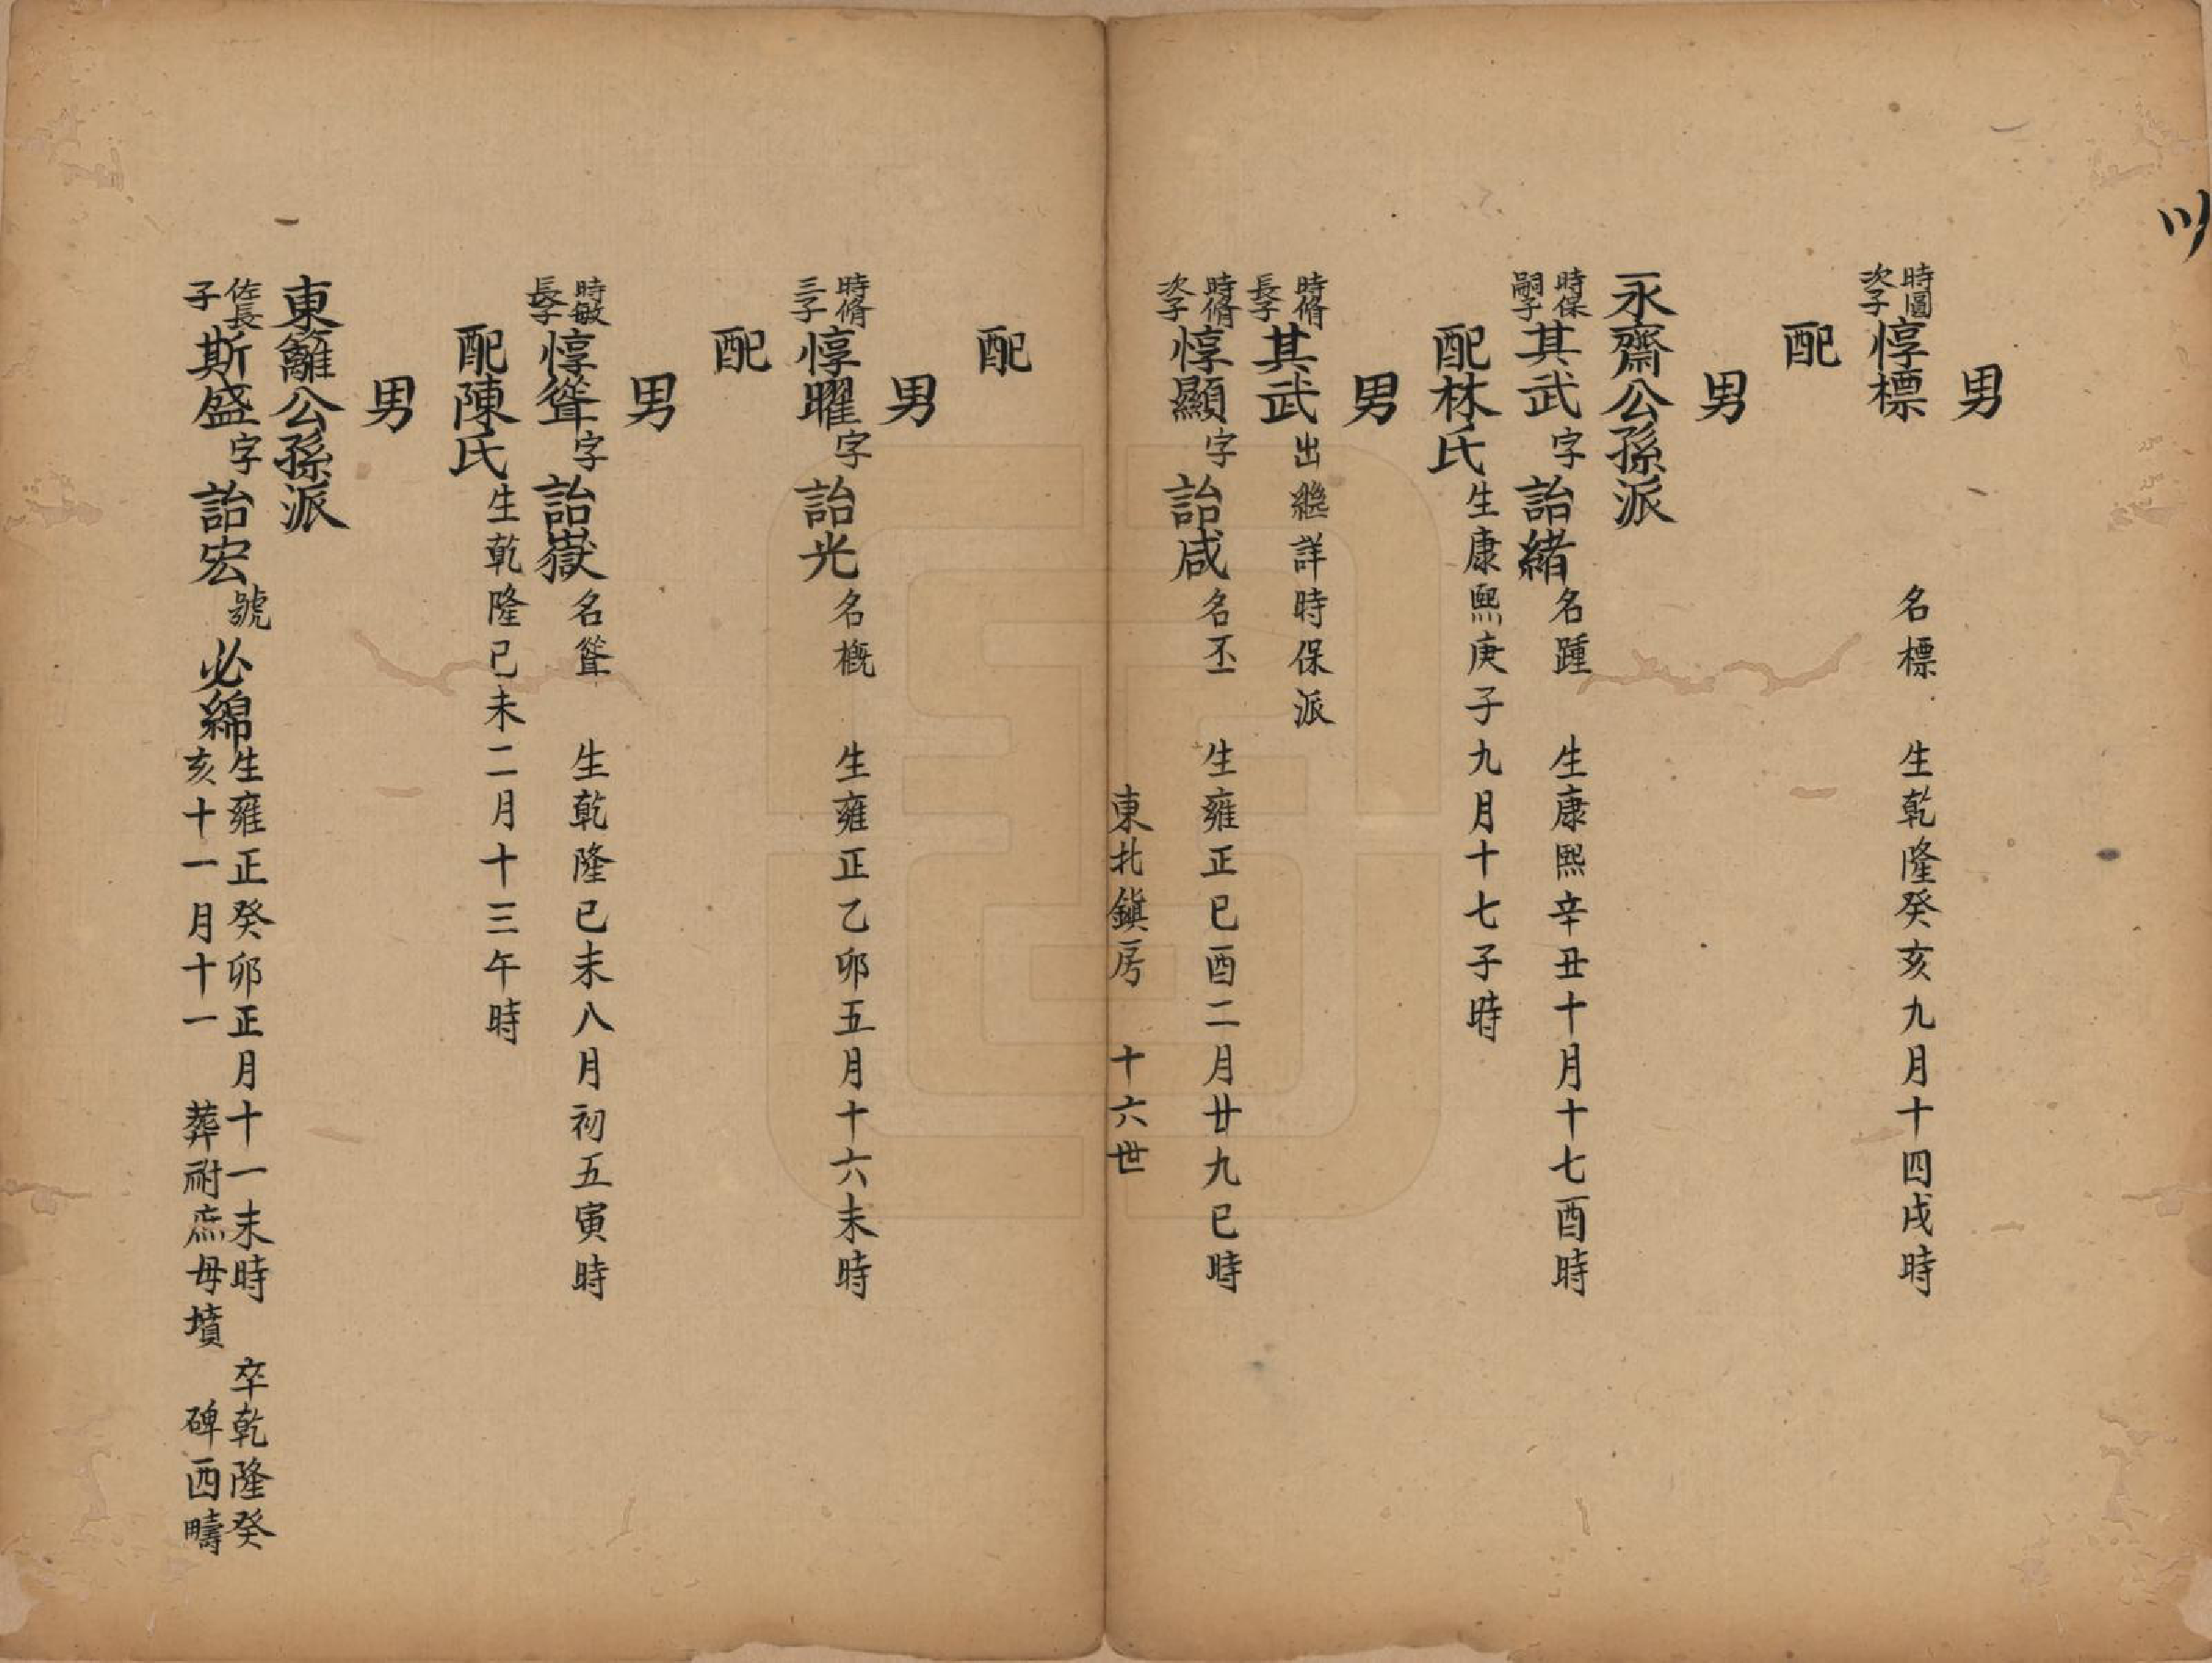 男
時圖次子惇標 名標 生乾隆癸亥九月十四戌時
配
男
永齋公孫派
時保嗣子其武字詒緒名踵 生康熙辛丑十月十七酉時
配林氏生康熙庚子九月十七子時
男
時脩長子其武出繼詳時保派
時脩次子惇顯字詒咸名丕 生雍正己酉二月廿九巳時
東北鎮房 十六世
配
男
時脩三子惇曜字詒光名概 生雍正乙卯五月十六未時
配
男
時敏長子惇聳字詒嶽名聳 生乾隆己未八月初五寅時
配陳氏生乾隆己未二月十三午時
男
東籬公孫派
佐長子斯盛字詒宏號必綿生雍正癸卯正月十一未時 卒乾隆癸
亥十一月十一 葬祔庶母墳 碑西疇